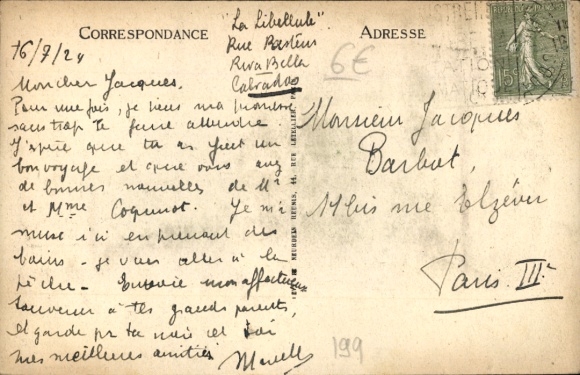 CORRESPONDANCE
ADRESSE
"La Libellule"
Rue Pasteur
Riva Bella
Calvados
6€
16/7/24
Mon cher Jacques,
Pour une fois, je tiens ma promesse
sans trop te faire attendre.
J'espère que tu as fait un
bon voyage et que vous avez
de bonnes nouvelles de Mr
et Mme Coquinot. Je m'a
muse ici en prenant des
bains - je vais aller à la
pêche - Envoie mon affectueux
souvenir à tes grands parents,
et garde pr ta mère et toi
mes meilleures amitiés
Marcelle
Monsieur Jacques
Barbut,
11 bis rue Elzévir
Paris IIIe
199
15c